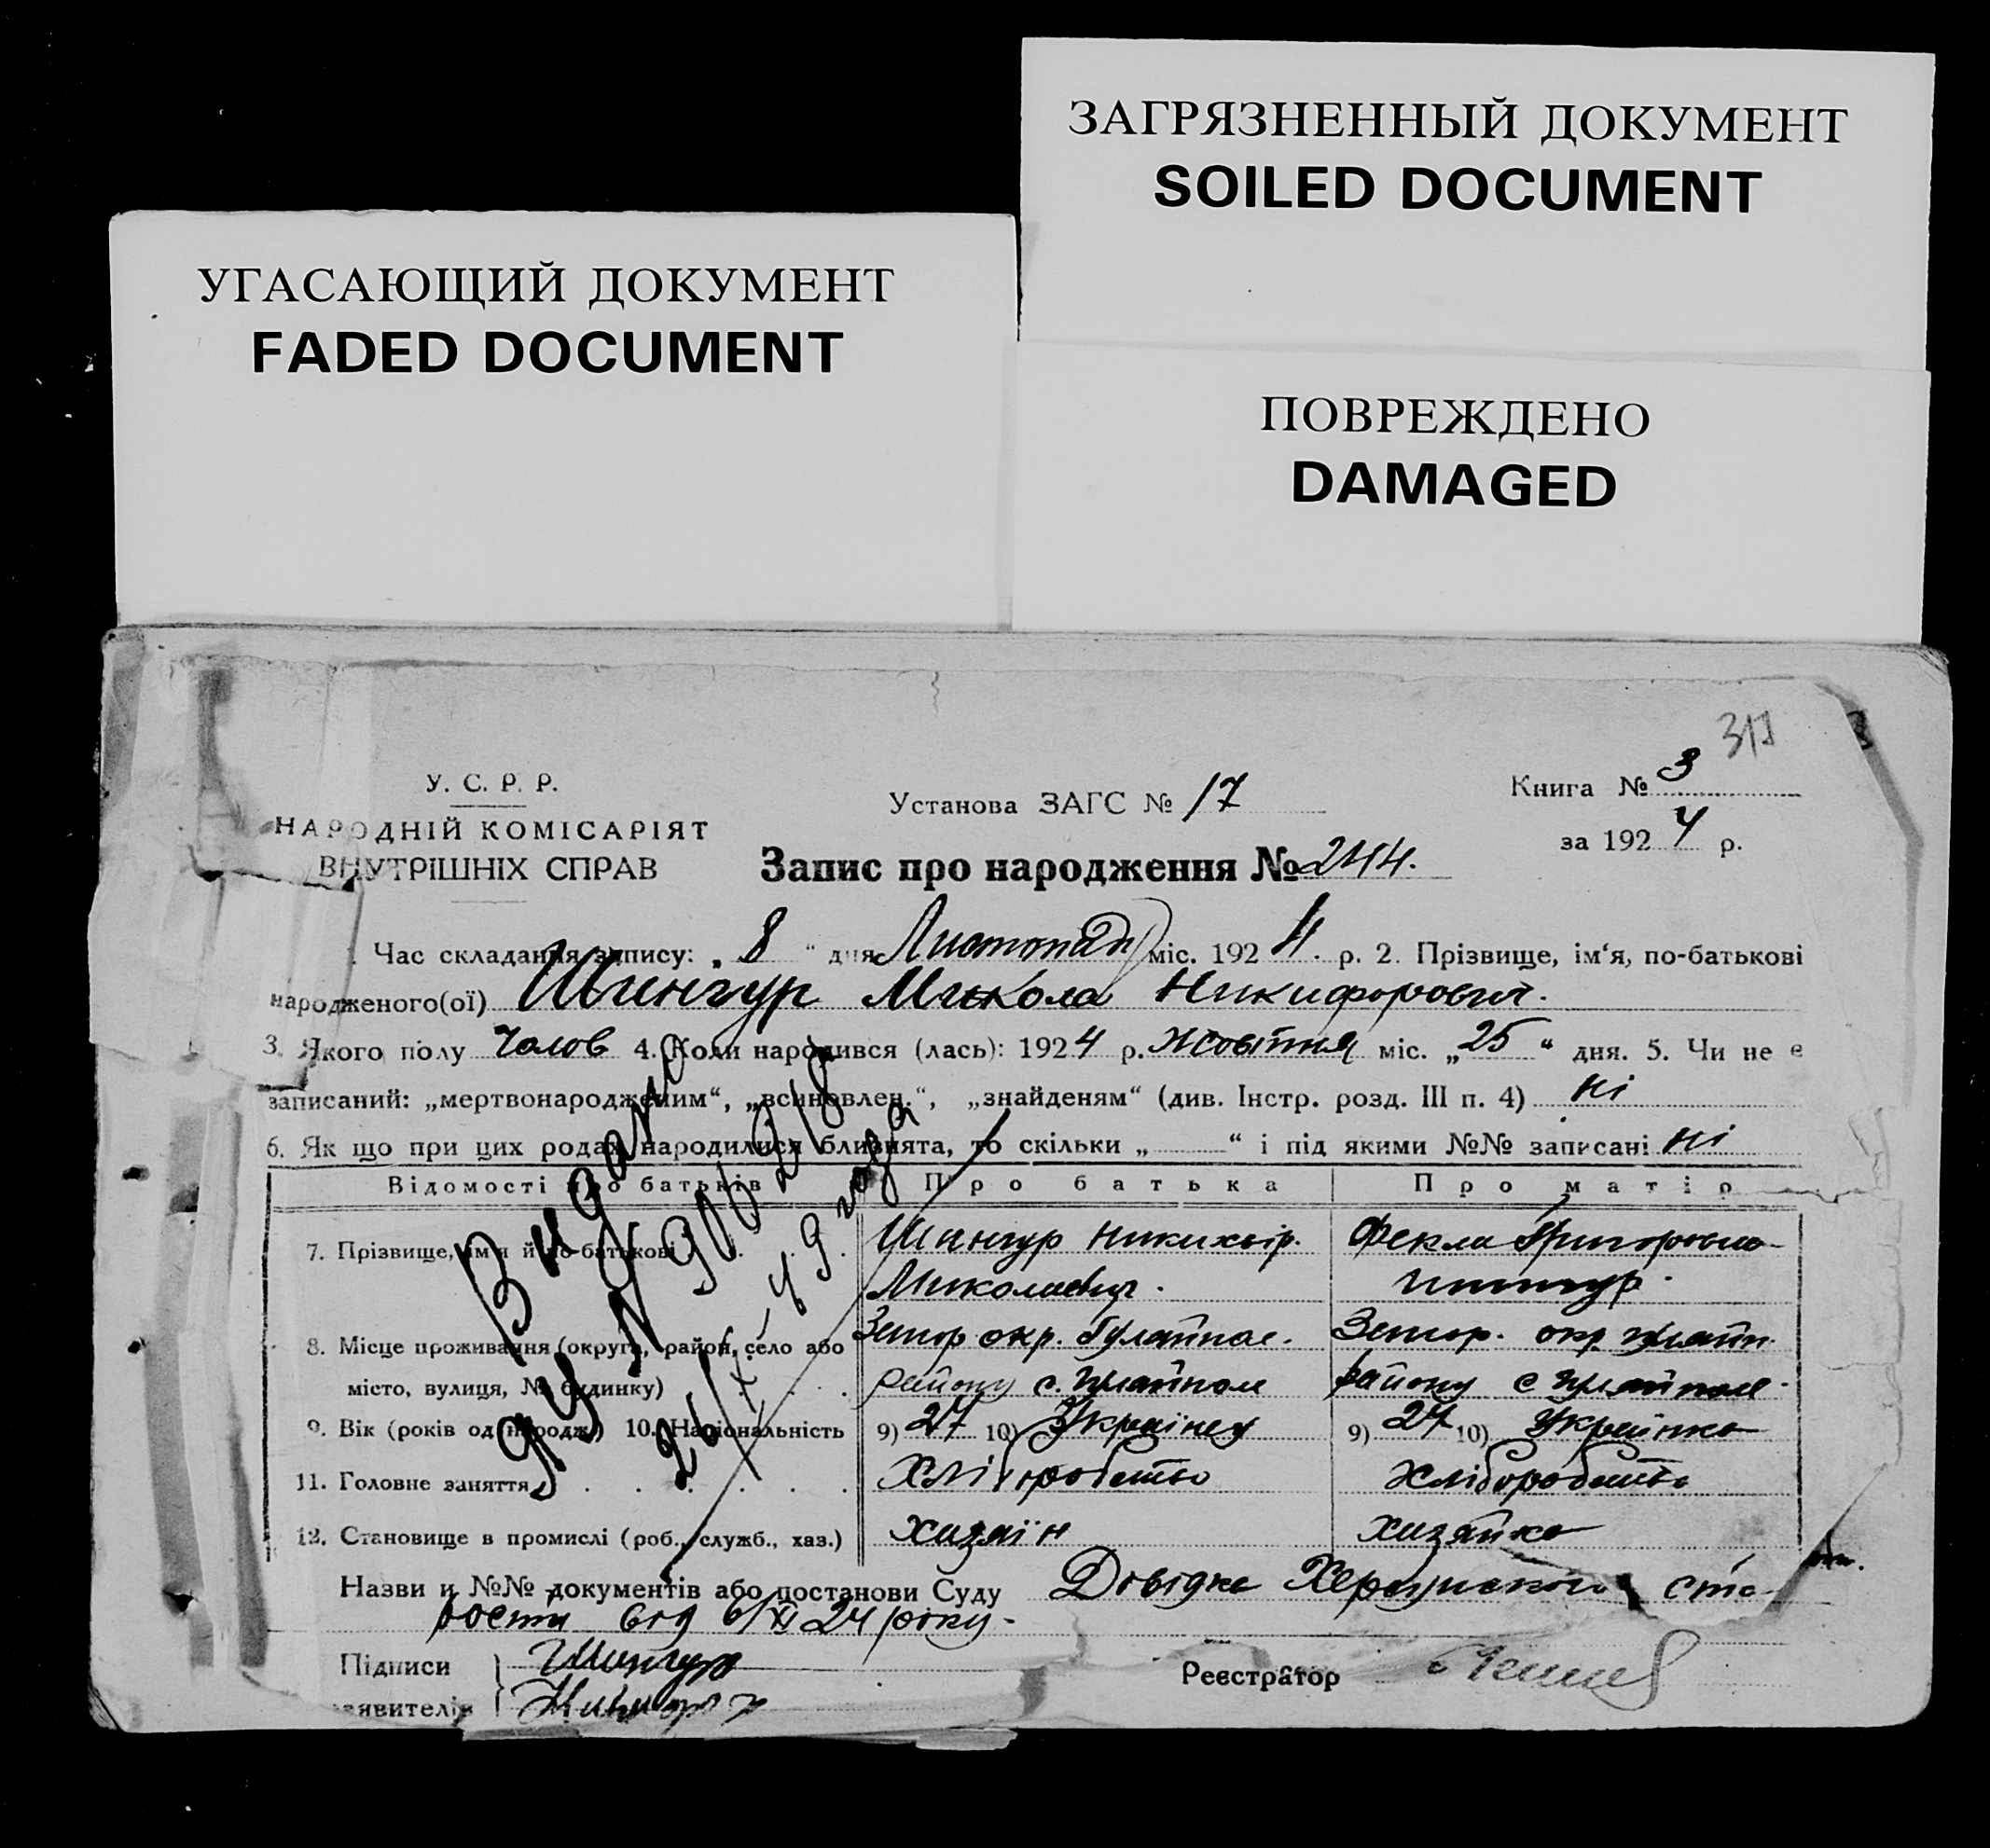 ЗАГРЯЗНЕННЫЙ ДОКУМЕНТ
SOILED DOCUMENT
УГАСАЮЩИЙ ДОКУМЕНТ
FADED DOCUMENT
ПОВРЕЖДЕНО
DAMAGED
У. С. Р. Р.
НАРОДНІЙ КОМІСАРІЯТ
ВНУТРІШНІХ СПРАВ
Установа ЗАГС № 17
Книга № 3
за 1924 р.
Запис про народження № 244.
Час складання запису: „ 8 “ дня Листопад міс. 1924. р. 2. Прізвище, ім‘я, по-батькові
народженого(ої) Шингур Микола Никифорович.
3. Якого полу Чолов 4. Коли народився (лась): 1924 р. Жовтня міс. „25“ дня. 5. Чи не є
записаний: „мертвонародженим“, „всиновлен.“, „знайденям“ (див. Інстр. розд. III п. 4) ні
6. Як що при цих родах народилися близнята, то скільки „ “ і під якими №№ записані ні
Відомості про батьків Про батька Про матір
7. Прізвище, ім‘я й по-батькові Шингур Никихвір. Фекла Григоровна
Миколаевич. Шингур.
8. Місце проживання (округа, район, село або окр. окр.
місто, вулиця, № будинку) району с. району с
9. Вік (років од народж.) 10. Національність 9) 27 10) Українец 9) 27 10) Українка
11. Головне заняття Хліборобство Хліборобство
12. Становище в промислі (роб., служб., хаз.) Хазяїн Хазяйка
Назви и №№ документів або постанови Суду Довідка Ста-
рости від 6/XI 24 року.
Підписи Шингур
заявителів
Реєстратор
Видано
ЯЦ №
24/X-49 года